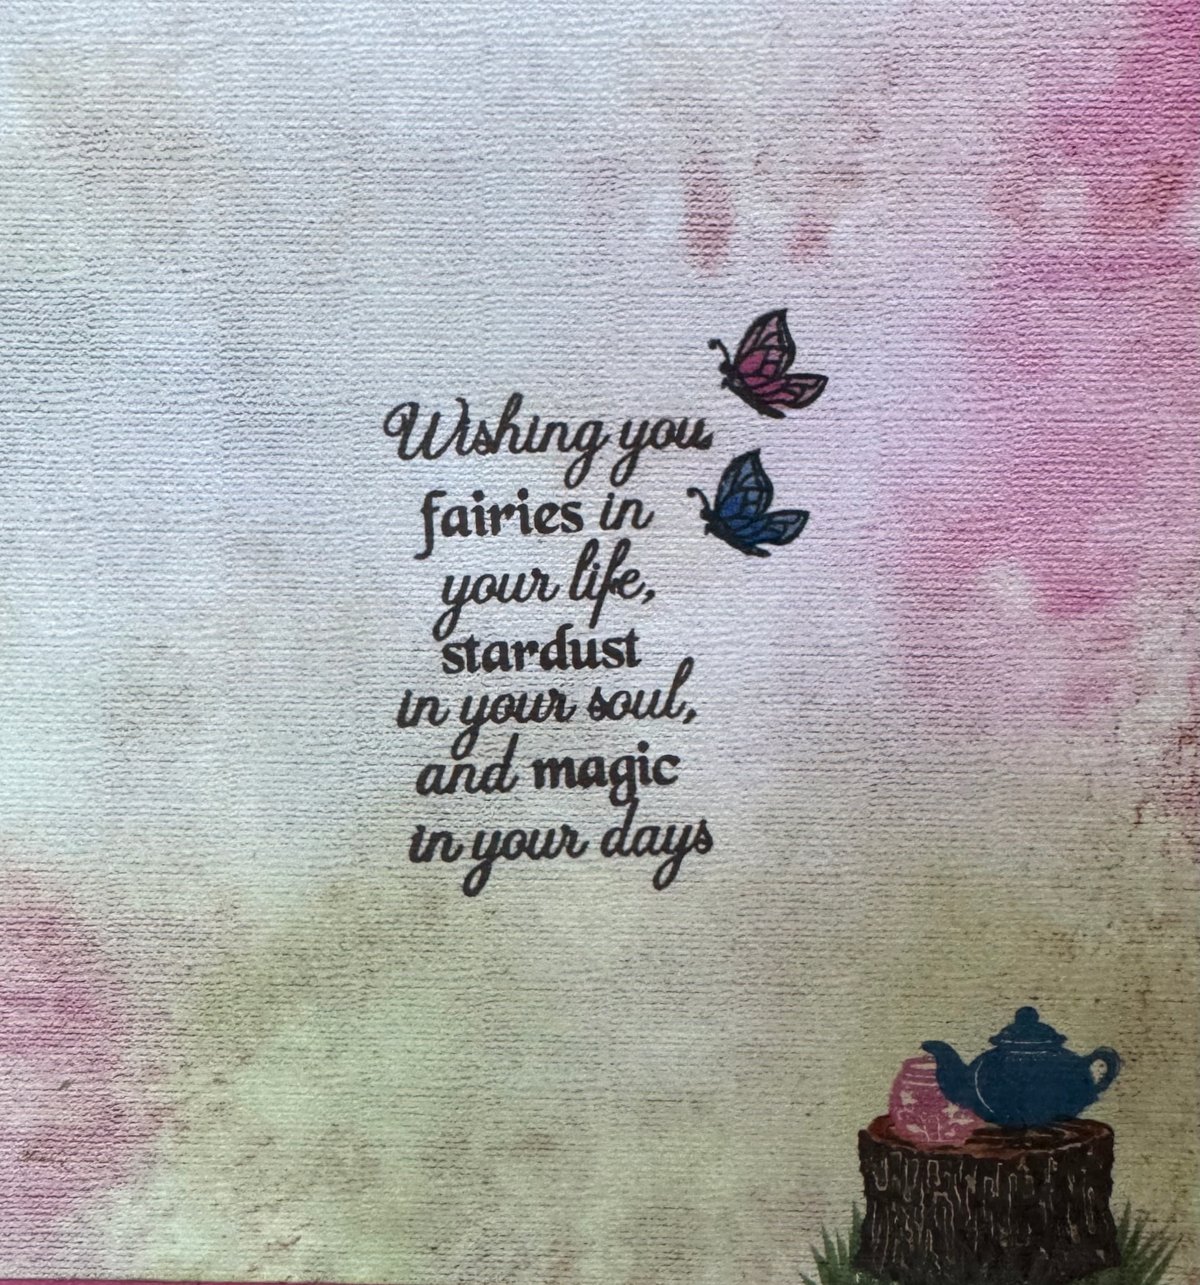 Wishing you
fairies in
your life,
stardust
in your soul,
and magic
in your days